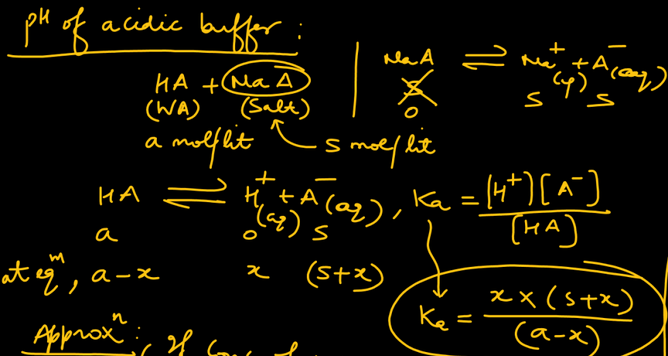 pH of acidic buffer :
HA + NaA
(WA) (Salt)
a mol/lit s mol/lit
NaA ⇌ Na⁺(aq) + A⁻(aq)
s s s
0
HA ⇌ H⁺(aq) + A⁻(aq), Ka = [H⁺][A⁻]/[HA]
a 0 s
at eqᵐ, a-x x (s+x)
Ka = x × (s+x)/(a-x)
Approxⁿ :